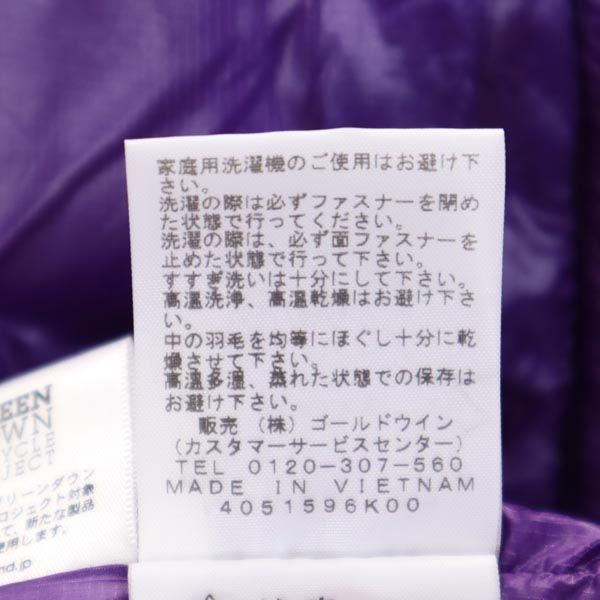 家庭用洗濯機のご使用はお避け下
さい。
洗濯の際は必ずファスナーを閉め
た状態で行ってください。
洗濯の際は、必ず面ファスナーを
止めた状態で行って下さい。
すすぎ洗いは十分にして下さい。
高温洗浄、高温乾燥はお避け下さ
い。
中の羽毛を均等にほぐし十分に乾
燥させて下さい。
高温多湿、蒸れた状態での保存は
お避け下さい。
販売 (株) ゴールドウイン
(カスタマーサービスセンター)
TEL 0120-307-560
MADE IN VIETNAM
4051596K00
EEN
OWN
YCLE
JECT
リーンダウン
ロジェクト対象
て、新たな製品
使用します。
nd.jp